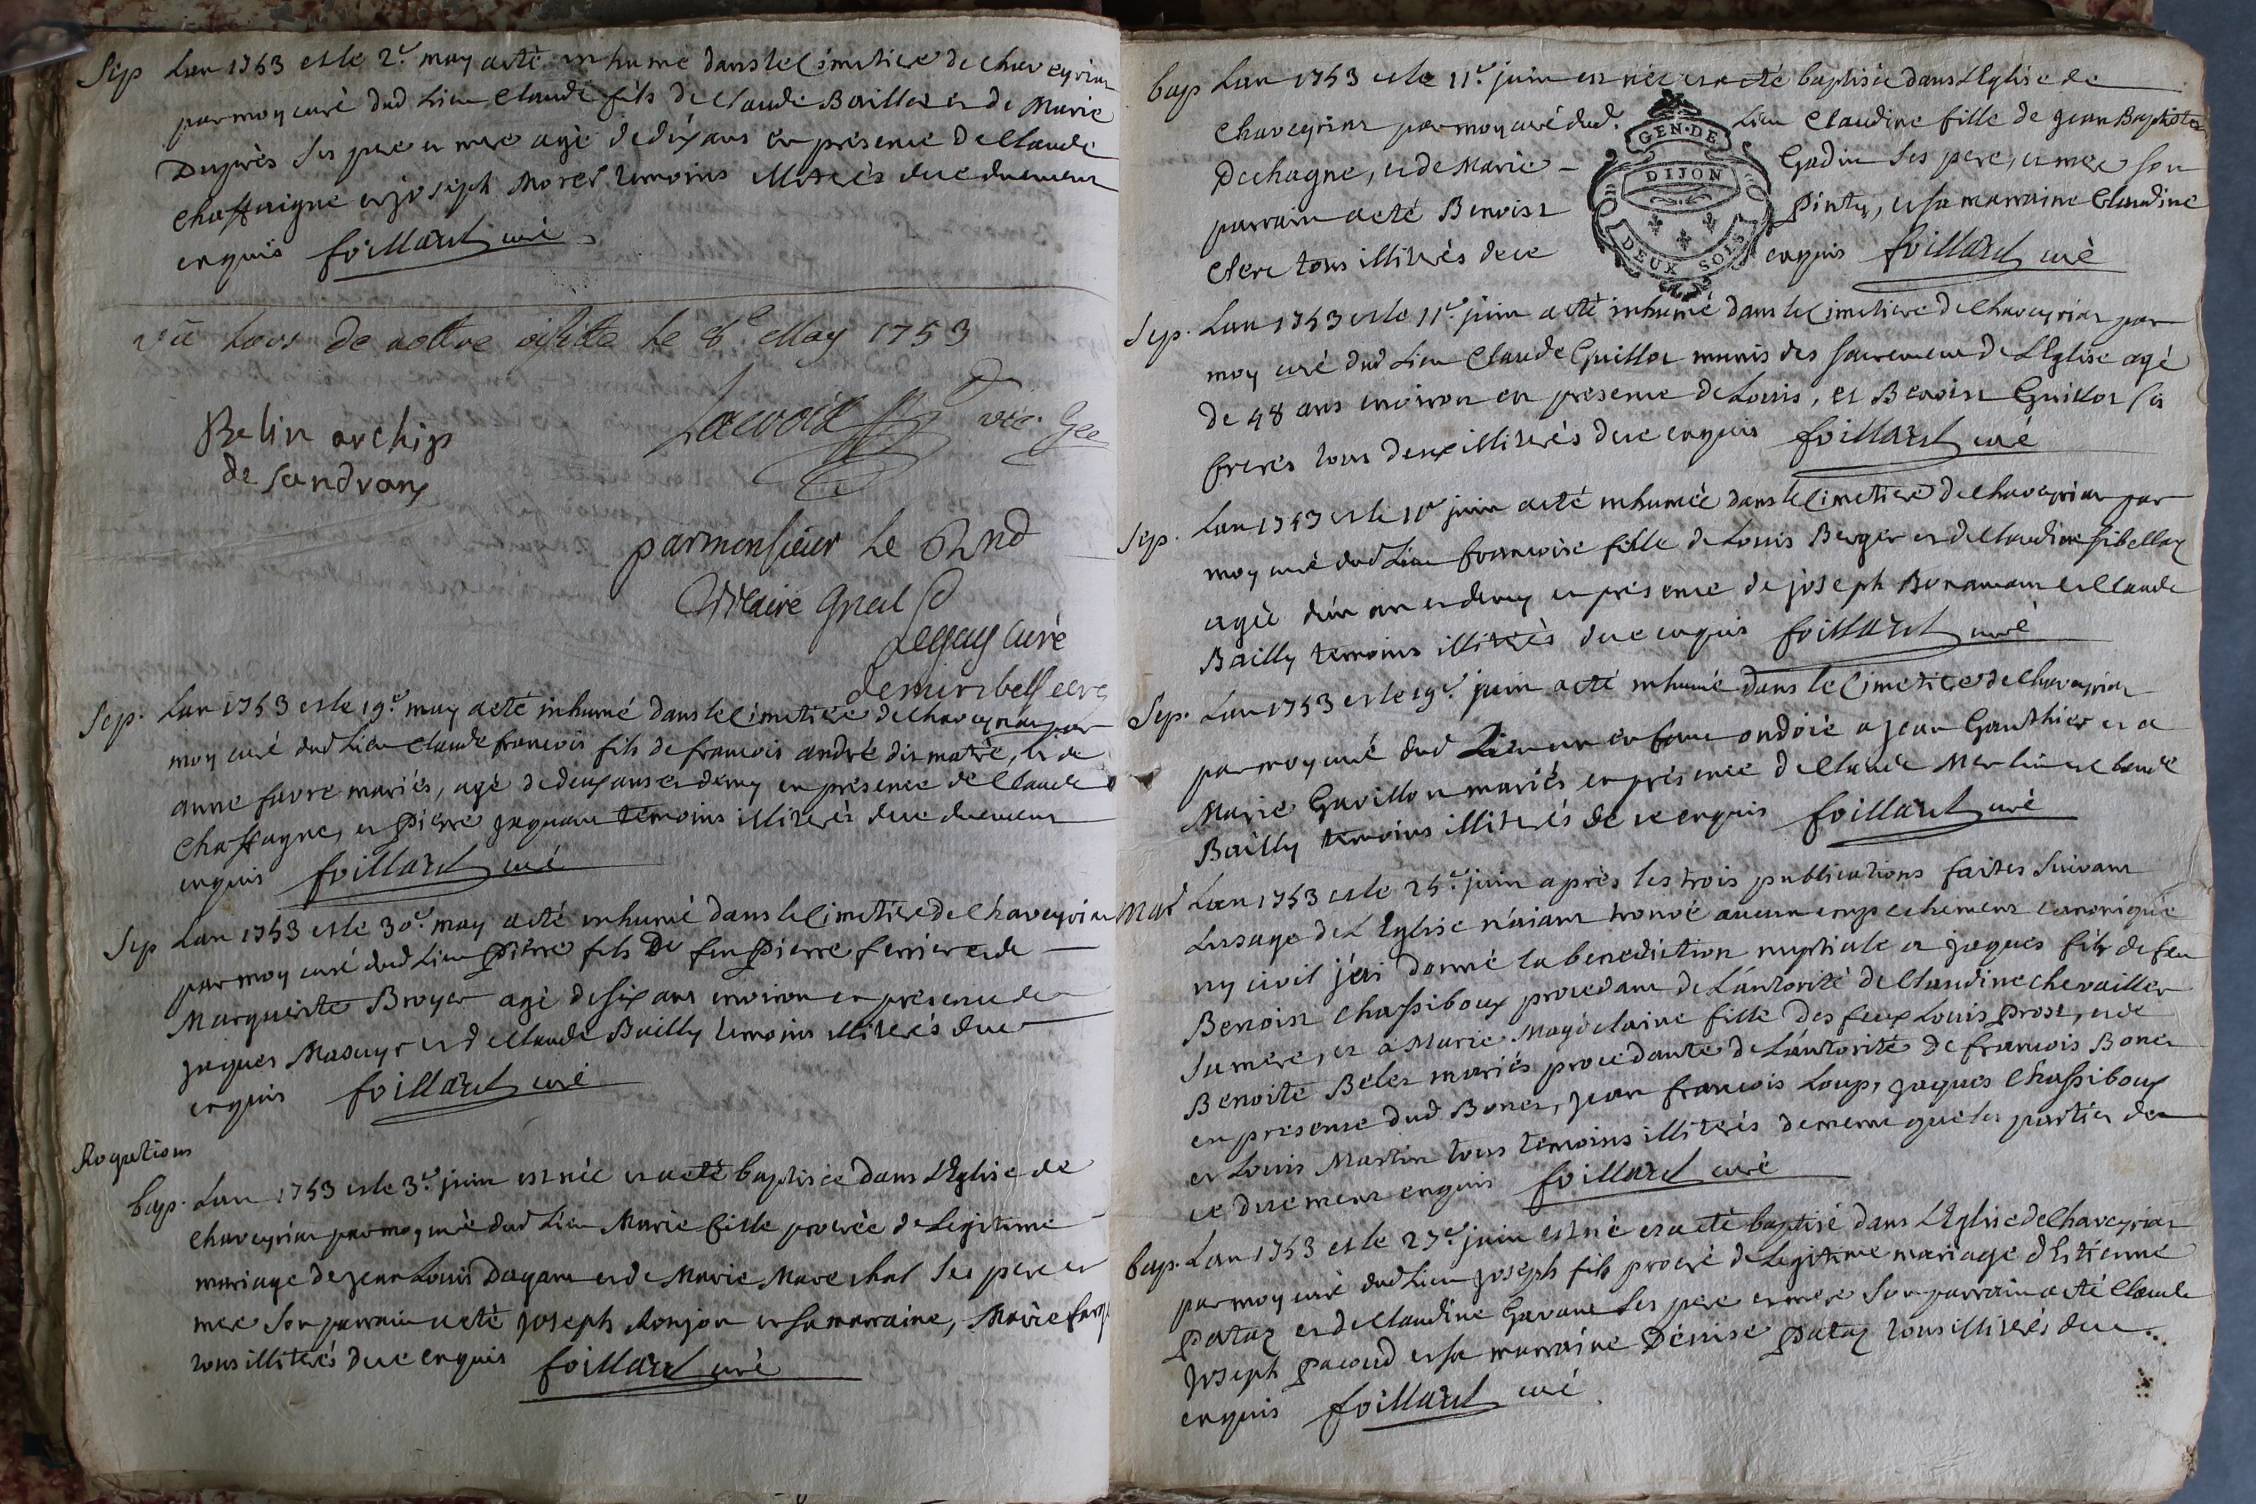 Sep Lan 1753 et le 2e may a eté inhumé dans le Cimetiere de chaveyriat
par moy curé dud Lieu Claude fils de Claude Baillet et de Marie
Duprès ses pere et mere agé de dix ans en présence de Claude
Chaffaigne et joseph Morel temoins illiterés de ce duement
enquis foillard curé
Vû Lors de nottre visitte le 8e May 1753
Belin archip
de Sandrans
Lacroix vic. Ge
par monsieur le
vicaire gnal
Legay curé
de miribel
Sep. Lan 1753 et le 19e may a eté inhumé dans le Cimetiere de chaveyriat par
moy curé dud Lieu Claude francois fils de francois andré dit matre, et de
anne favre mariés, agé de deux ans et demy en présence de Claude
Chaffagne, et pierre jaquau temoins illiterés de ce duement
enquis foillard curé
Sep Lan 1753 et le 30e may a eté inhumé dans le Cimetiere de Chaveyriat
par moy curé dud Lieu pierre fils De feu pierre ferrier et de
Marguerite Broyer agé de six ans environ en présence de
jaques Masuyr et de Claude Bailly temoins illiterés de ce
enquis foillard curé
Rogations
bap. Lan 1753 et le 3e juin est née et a eté baptisée dans L'Eglise de
chaveyriat par moy curé dud Lieu Marie fille procrée de Legitime
mariage de jean Louis Dagam et de Marie Marechal ses pere et
mere son parrain a eté joseph Ronjon et sa marraine, Marie
tous illiterés de ce enquis foillard curé
bap Lan 1753 et le 11e juin est née et a eté baptisée dans L'Eglise de
Chaveyriat par moy curé dud. Lieu Claudine fille de jean Baptiste
Duchagne, et de Marie - Gadin ses pere, et mere son
parrain a eté Benoist Pintz, et sa marraine Claudine
Clerc tous illiterés de ce enquis foillard curé
GEN. DE
DIJON
DEUX SOLS
Sep. Lan 1753 et le 11e juin a eté inhumé dans le Cimetiere de Chaveyriat par
moy curé dud Lieu Claude Guillot munis des sacremens de L'Eglise agé
de 48 ans environ en presence de Louis, et Benoist Guillot ses
freres tous deux illiterés de ce enquis foillard curé
Sep. Lan 1753 et le 11e juin a eté inhumée dans le Cimetiere de Chaveyriat par
moy curé dud Lieu francoise fille de Louis Berger et de Claudine Sibellay
agée d'un an et demy en présence de joseph Bonamour et Claude
Bailly temoins illiterés de ce enquis foillard curé
Sep. Lan 1753 et le 19e juin a eté inhumé dans le Cimetiere de Chaveyriat
par moy curé dud Lieu un enfant ondoié a jean Gauthier et a
Marie Gavillon mariés en présence de Claude Merlin et Claude
Bailly temoins illiterés de ce enquis foillard curé
Mar Lan 1753 et le 25e juin après les trois publications faites suivant
Lusage de L'Eglise n'aiant trouvé aucun empechement canonique
ny civil j'ai donné la benediction nuptiale a jaques fils de feu
Benoist Chassiboux procedant de L'autorité de Claudine Chevaillier
sa mere, et a Marie Magdelaine fille des feux Louis Prost, et de
Benoite Belet mariés procedante de L'autorité de francois Bonet
en presence dud Bonet, jean francois Loup, jaques Chassiboux
et Louis Martin tous temoins illiterés de meme que les parties de
ce duement enquis foillard curé
bap. Lan 1753 et le 27e juin est né et a eté baptisé dans L'Eglise de Chaveyriat
par moy curé dud Lieu joseph fils procré de Legitime mariage d'Estienne
Pataz et de Claudine Gavant ses pere et mere son parrain a eté Claude
joseph Pacoud et sa marraine Denise Pataz tous illiterés de ce
enquis foillard curé